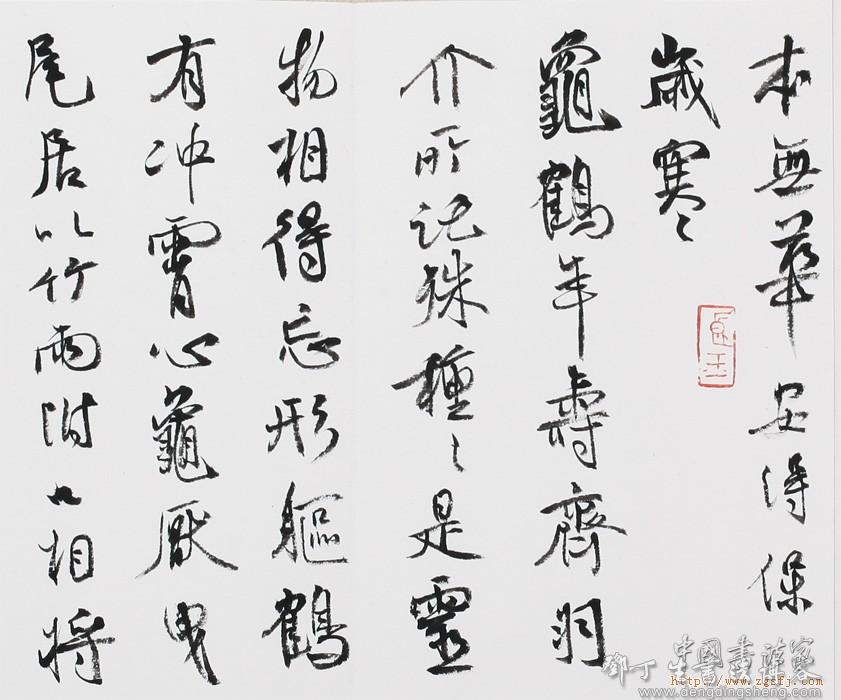 本無華安得保
歲寒〻
龜鶴年壽齊羽
介所託殊種〻是靈
物相得忘形軀鶴
有冲霄心龜厭曳
尾居以竹兩附口相將
Http://www.zgsfj.com
www.dengdingsheng.com